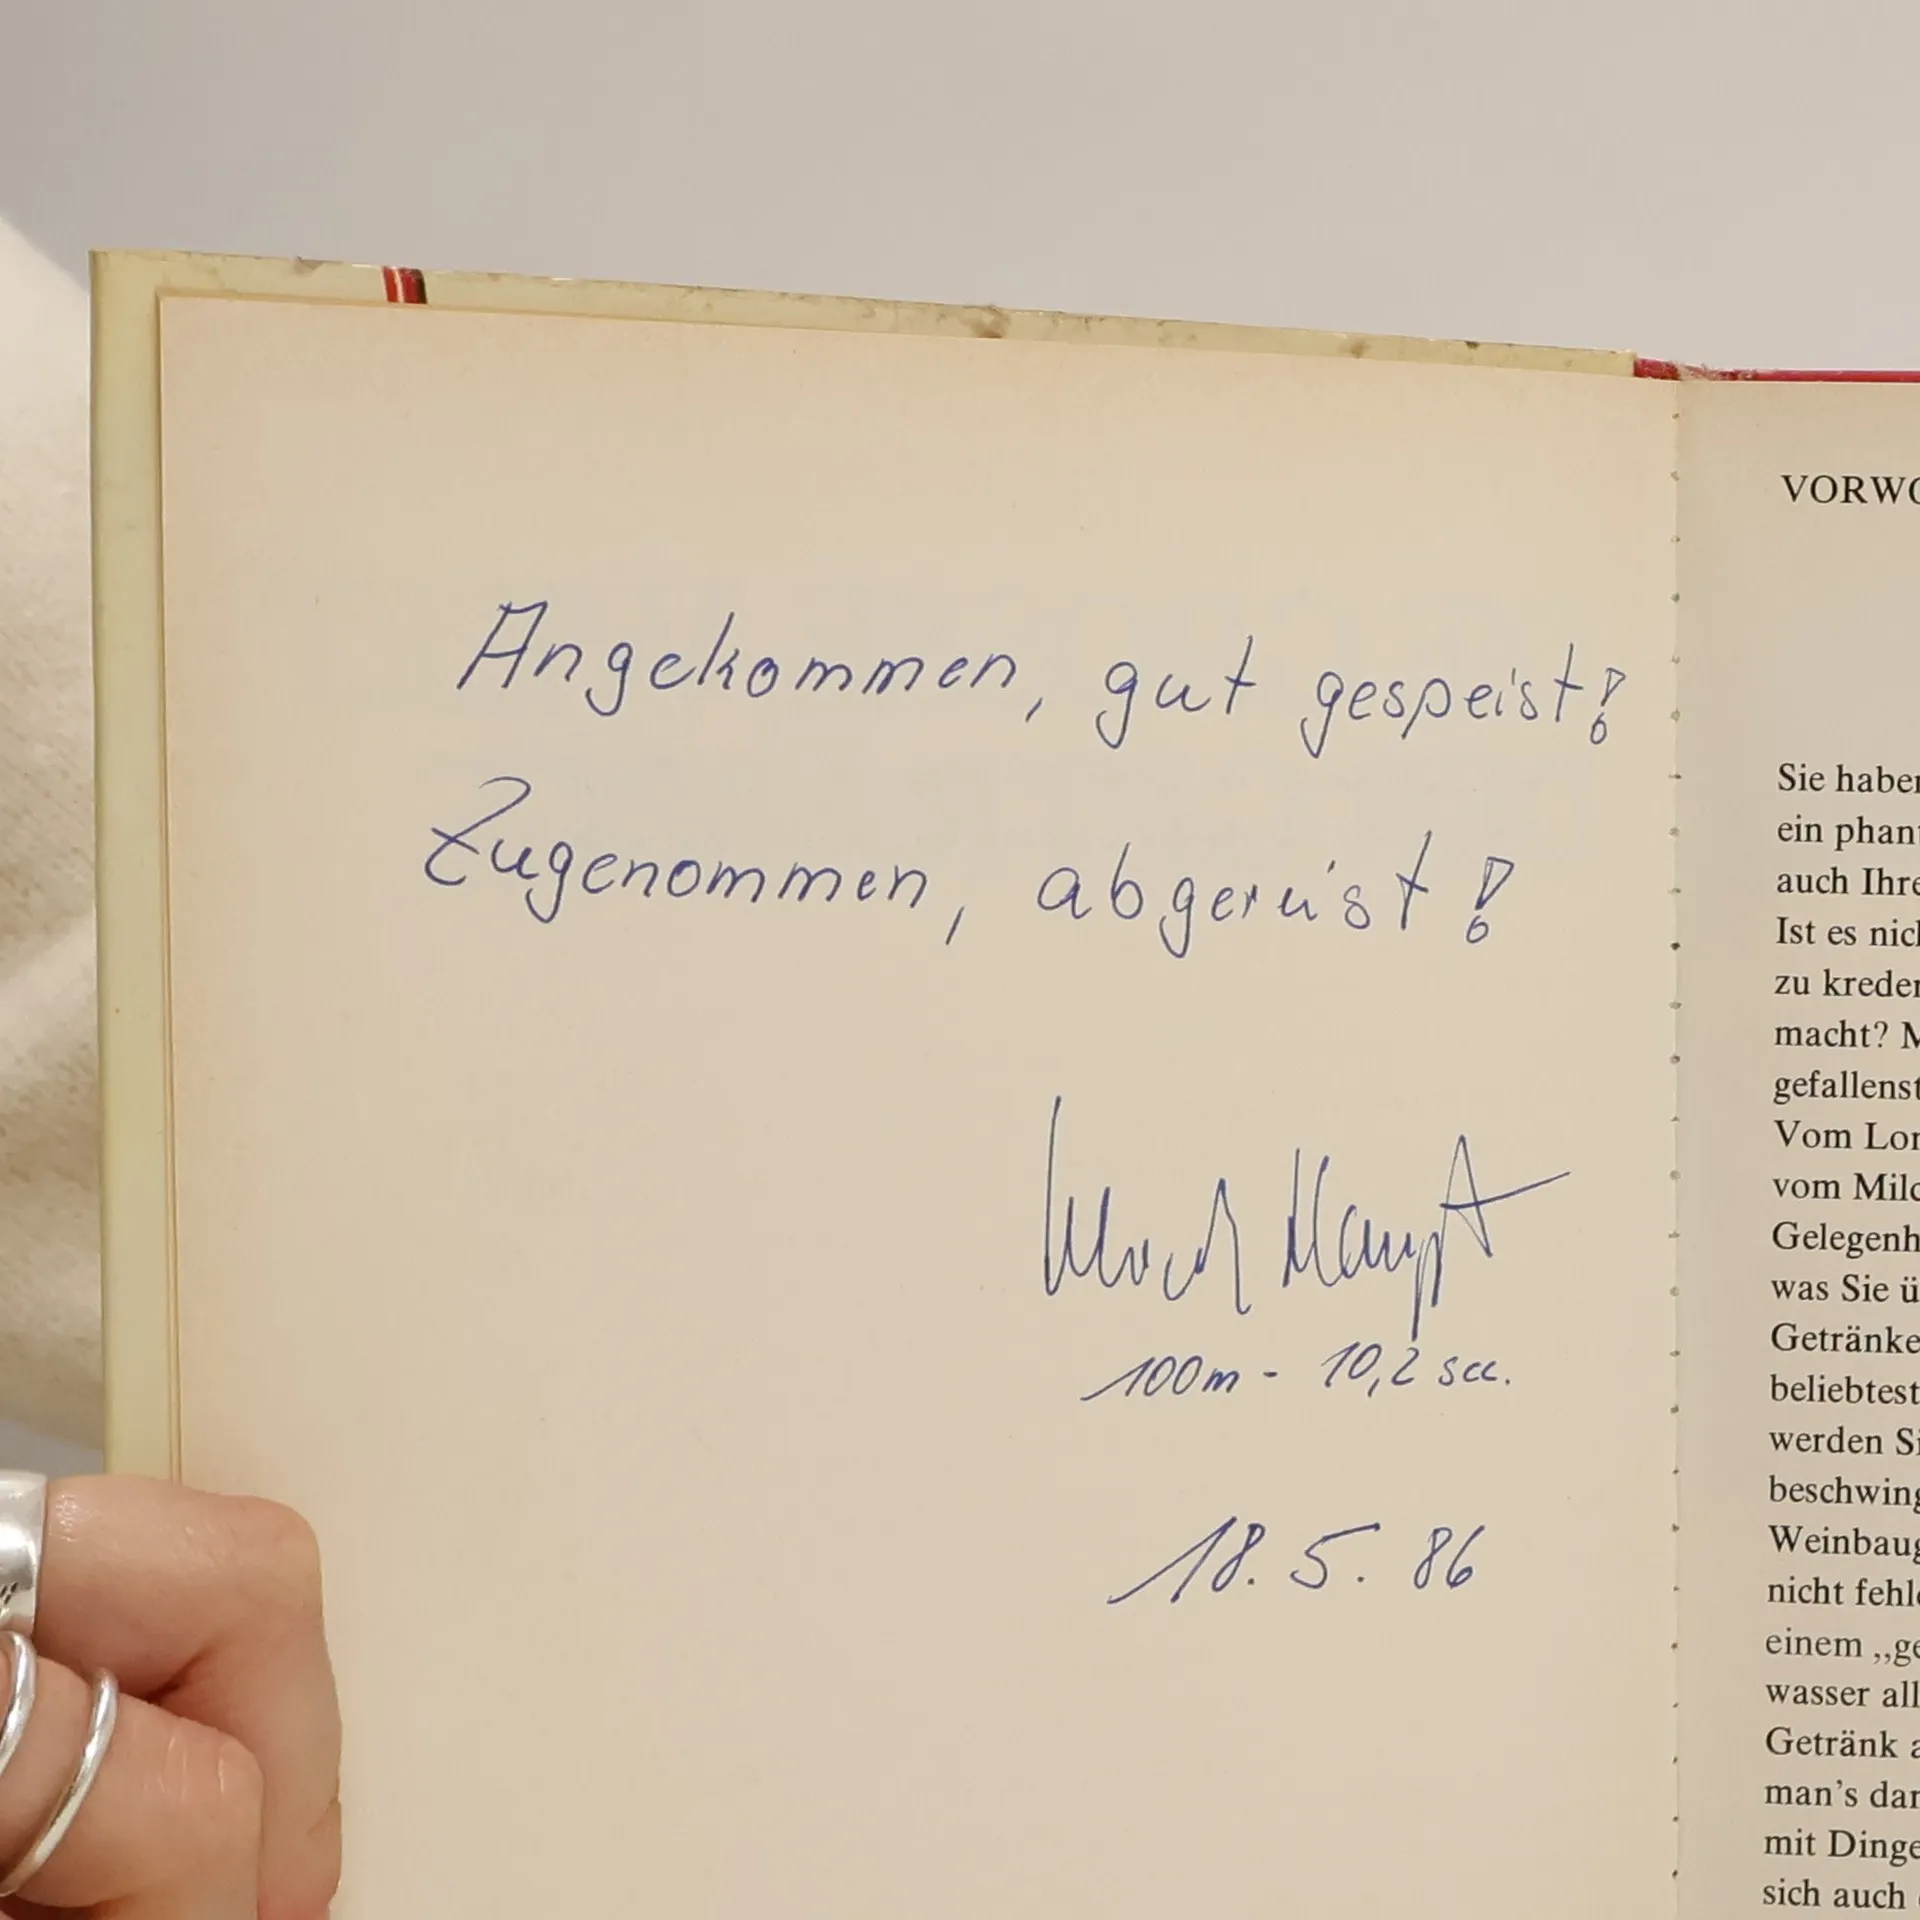 Angekommen, gut gespeist!
Zugenommen, abgereist!
Ulrich Haupt
100m - 10,2 sec.
18. 5. 86
VORWO
Sie haben
ein phant
auch Ihre
Ist es nich
zu kreden
macht? M
gefallenst
Vom Lon
vom Milc
Gelegenh
was Sie ü
Getränke
beliebtest
werden Si
beschwing
Weinbaug
nicht fehle
einem „ge
wasser all
Getränk a
man's dar
mit Dinge
sich auch